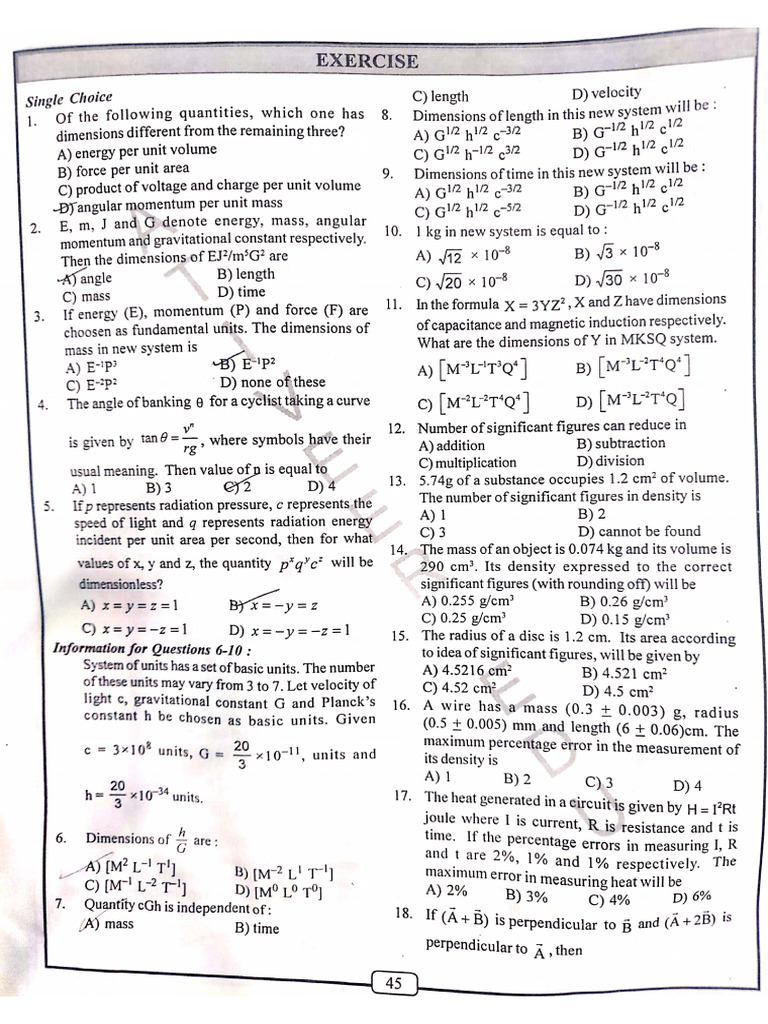 EXERCISE
Single Choice
1. Of the following quantities, which one has
dimensions different from the remaining three?
A) energy per unit volume
B) force per unit area
C) product of voltage and charge per unit volume
D) angular momentum per unit mass
2. E, m, J and G denote energy, mass, angular
momentum and gravitational constant respectively.
Then the dimensions of EJ²/m⁵G² are
A) angle B) length
C) mass D) time
3. If energy (E), momentum (P) and force (F) are
choosen as fundamental units. The dimensions of
mass in new system is
A) E⁻¹P³ B) E⁻¹P²
C) E⁻²P² D) none of these
4. The angle of banking θ for a cyclist taking a curve
is given by tan θ = vⁿ/rg, where symbols have their
usual meaning. Then value of n is equal to
A) 1 B) 3 C) 2 D) 4
5. If p represents radiation pressure, c represents the
speed of light and q represents radiation energy
incident per unit area per second, then for what
values of x, y and z, the quantity pˣqʸcᶻ will be
dimensionless?
A) x = y = z = 1 B) x = −y = z
C) x = y = −z = 1 D) x = −y = −z = 1
Information for Questions 6-10 :
System of units has a set of basic units. The number
of these units may vary from 3 to 7. Let velocity of
light c, gravitational constant G and Planck's
constant h be chosen as basic units. Given
c = 3×10⁸ units, G = 20/3 ×10⁻¹¹, units and
h = 20/3 ×10⁻³⁴ units.
6. Dimensions of h/G are :
A) [M² L⁻¹ T¹] B) [M⁻² L¹ T⁻¹]
C) [M⁻¹ L⁻² T⁻¹] D) [M⁰ L⁰ T⁰]
7. Quantity cGh is independent of :
A) mass B) time
C) length D) velocity
8. Dimensions of length in this new system will be :
A) G^1/2 h^1/2 c^−3/2 B) G^−1/2 h^1/2 c^1/2
C) G^1/2 h^−1/2 c^3/2 D) G^−1/2 h^1/2 c^1/2
9. Dimensions of time in this new system will be :
A) G^1/2 h^1/2 c^−3/2 B) G^−1/2 h^1/2 c^1/2
C) G^1/2 h^1/2 c^−5/2 D) G^−1/2 h^1/2 c^1/2
10. 1 kg in new system is equal to :
A) √12 × 10⁻⁸ B) √3 × 10⁻⁸
C) √20 × 10⁻⁸ D) √30 × 10⁻⁸
11. In the formula X = 3YZ², X and Z have dimensions
of capacitance and magnetic induction respectively.
What are the dimensions of Y in MKSQ system.
A) [M⁻³L⁻¹T³Q⁴] B) [M⁻³L⁻²T⁴Q⁴]
C) [M⁻²L⁻²T⁴Q⁴] D) [M⁻³L⁻²T⁴Q]
12. Number of significant figures can reduce in
A) addition B) subtraction
C) multiplication D) division
13. 5.74g of a substance occupies 1.2 cm² of volume.
The number of significant figures in density is
A) 1 B) 2
C) 3 D) cannot be found
14. The mass of an object is 0.074 kg and its volume is
290 cm³. Its density expressed to the correct
significant figures (with rounding off) will be
A) 0.255 g/cm³ B) 0.26 g/cm³
C) 0.25 g/cm³ D) 0.15 g/cm³
15. The radius of a disc is 1.2 cm. Its area according
to idea of significant figures, will be given by
A) 4.5216 cm² B) 4.521 cm²
C) 4.52 cm² D) 4.5 cm²
16. A wire has a mass (0.3 ± 0.003) g, radius
(0.5 ± 0.005) mm and length (6 ± 0.06)cm. The
maximum percentage error in the measurement of
its density is
A) 1 B) 2 C) 3 D) 4
17. The heat generated in a circuit is given by H = I²Rt
joule where I is current, R is resistance and t is
time. If the percentage errors in measuring I, R
and t are 2%, 1% and 1% respectively. The
maximum error in measuring heat will be
A) 2% B) 3% C) 4% D) 6%
18. If (A⃗ + B⃗) is perpendicular to B⃗ and (A⃗ + 2B⃗) is
perpendicular to A⃗, then
45
ATTVEER EDU